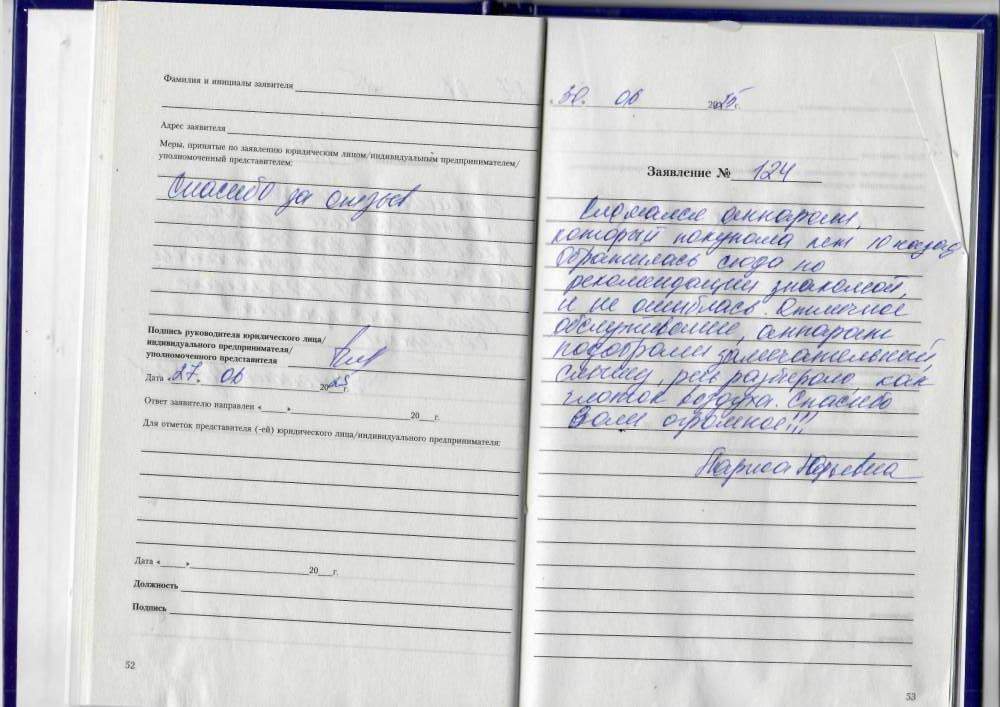 Фамилия и инициалы заявителя
Адрес заявителя
Меры, принятые по заявлению юридическим лицом/индивидуальным предпринимателем/
уполномоченный представителем:
Спасибо за отзыв
Подпись руководителя юридического лица/
индивидуального предпринимателя/
уполномоченного представителя
Дата «27. 06 2025 г.
Ответ заявителю направлен «____»____ 20__г.
Для отметок представителя (-ей) юридического лица/индивидуального предпринимателя:
Дата «____»____ 20__г.
Должность
Подпись
52
30. 06 20 г.
Заявление № 124
Сломался аппарат,
который покупала лет 10 назад.
Обратилась сюда по
рекомендации знакомой,
и не ошиблась. Отличное
обслуживание, аппарат
подобрали замечательный,
слышу, речь разбираю, как
глоток воздуха. Спасибо
Вам огромное!!!
Лариса Юрьевна
53